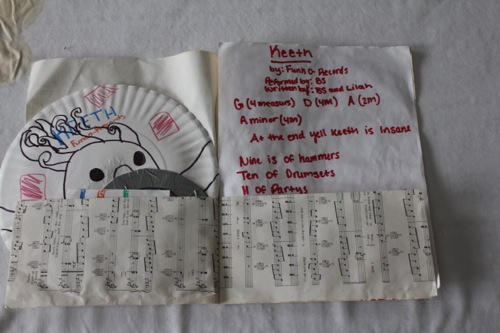 KEETH
Keeth
by: Funk O. Records
Performed by: BS
Written by: BS and Lilah
G (4 measurs) D (4m) A (2m)
A minor (4m)
At the end yell Keeth is Insane
Nine is of hammers
Ten of Drumsets
H of Partys